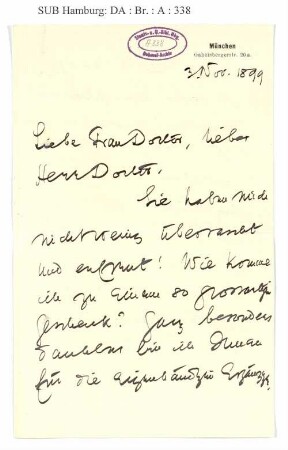 SUB Hamburg: DA : Br. : A : 338
München
3. Nov. 1899
Liebe Frau Doctor, lieber
Herr Doctor,
Sie haben mich
nicht wenig überrascht
und erfreut! Wie komme
ich zu einem so grossartigen
Geschenk? Ganz besonders
dankbar bin ich Ihnen
für die eigenhändige